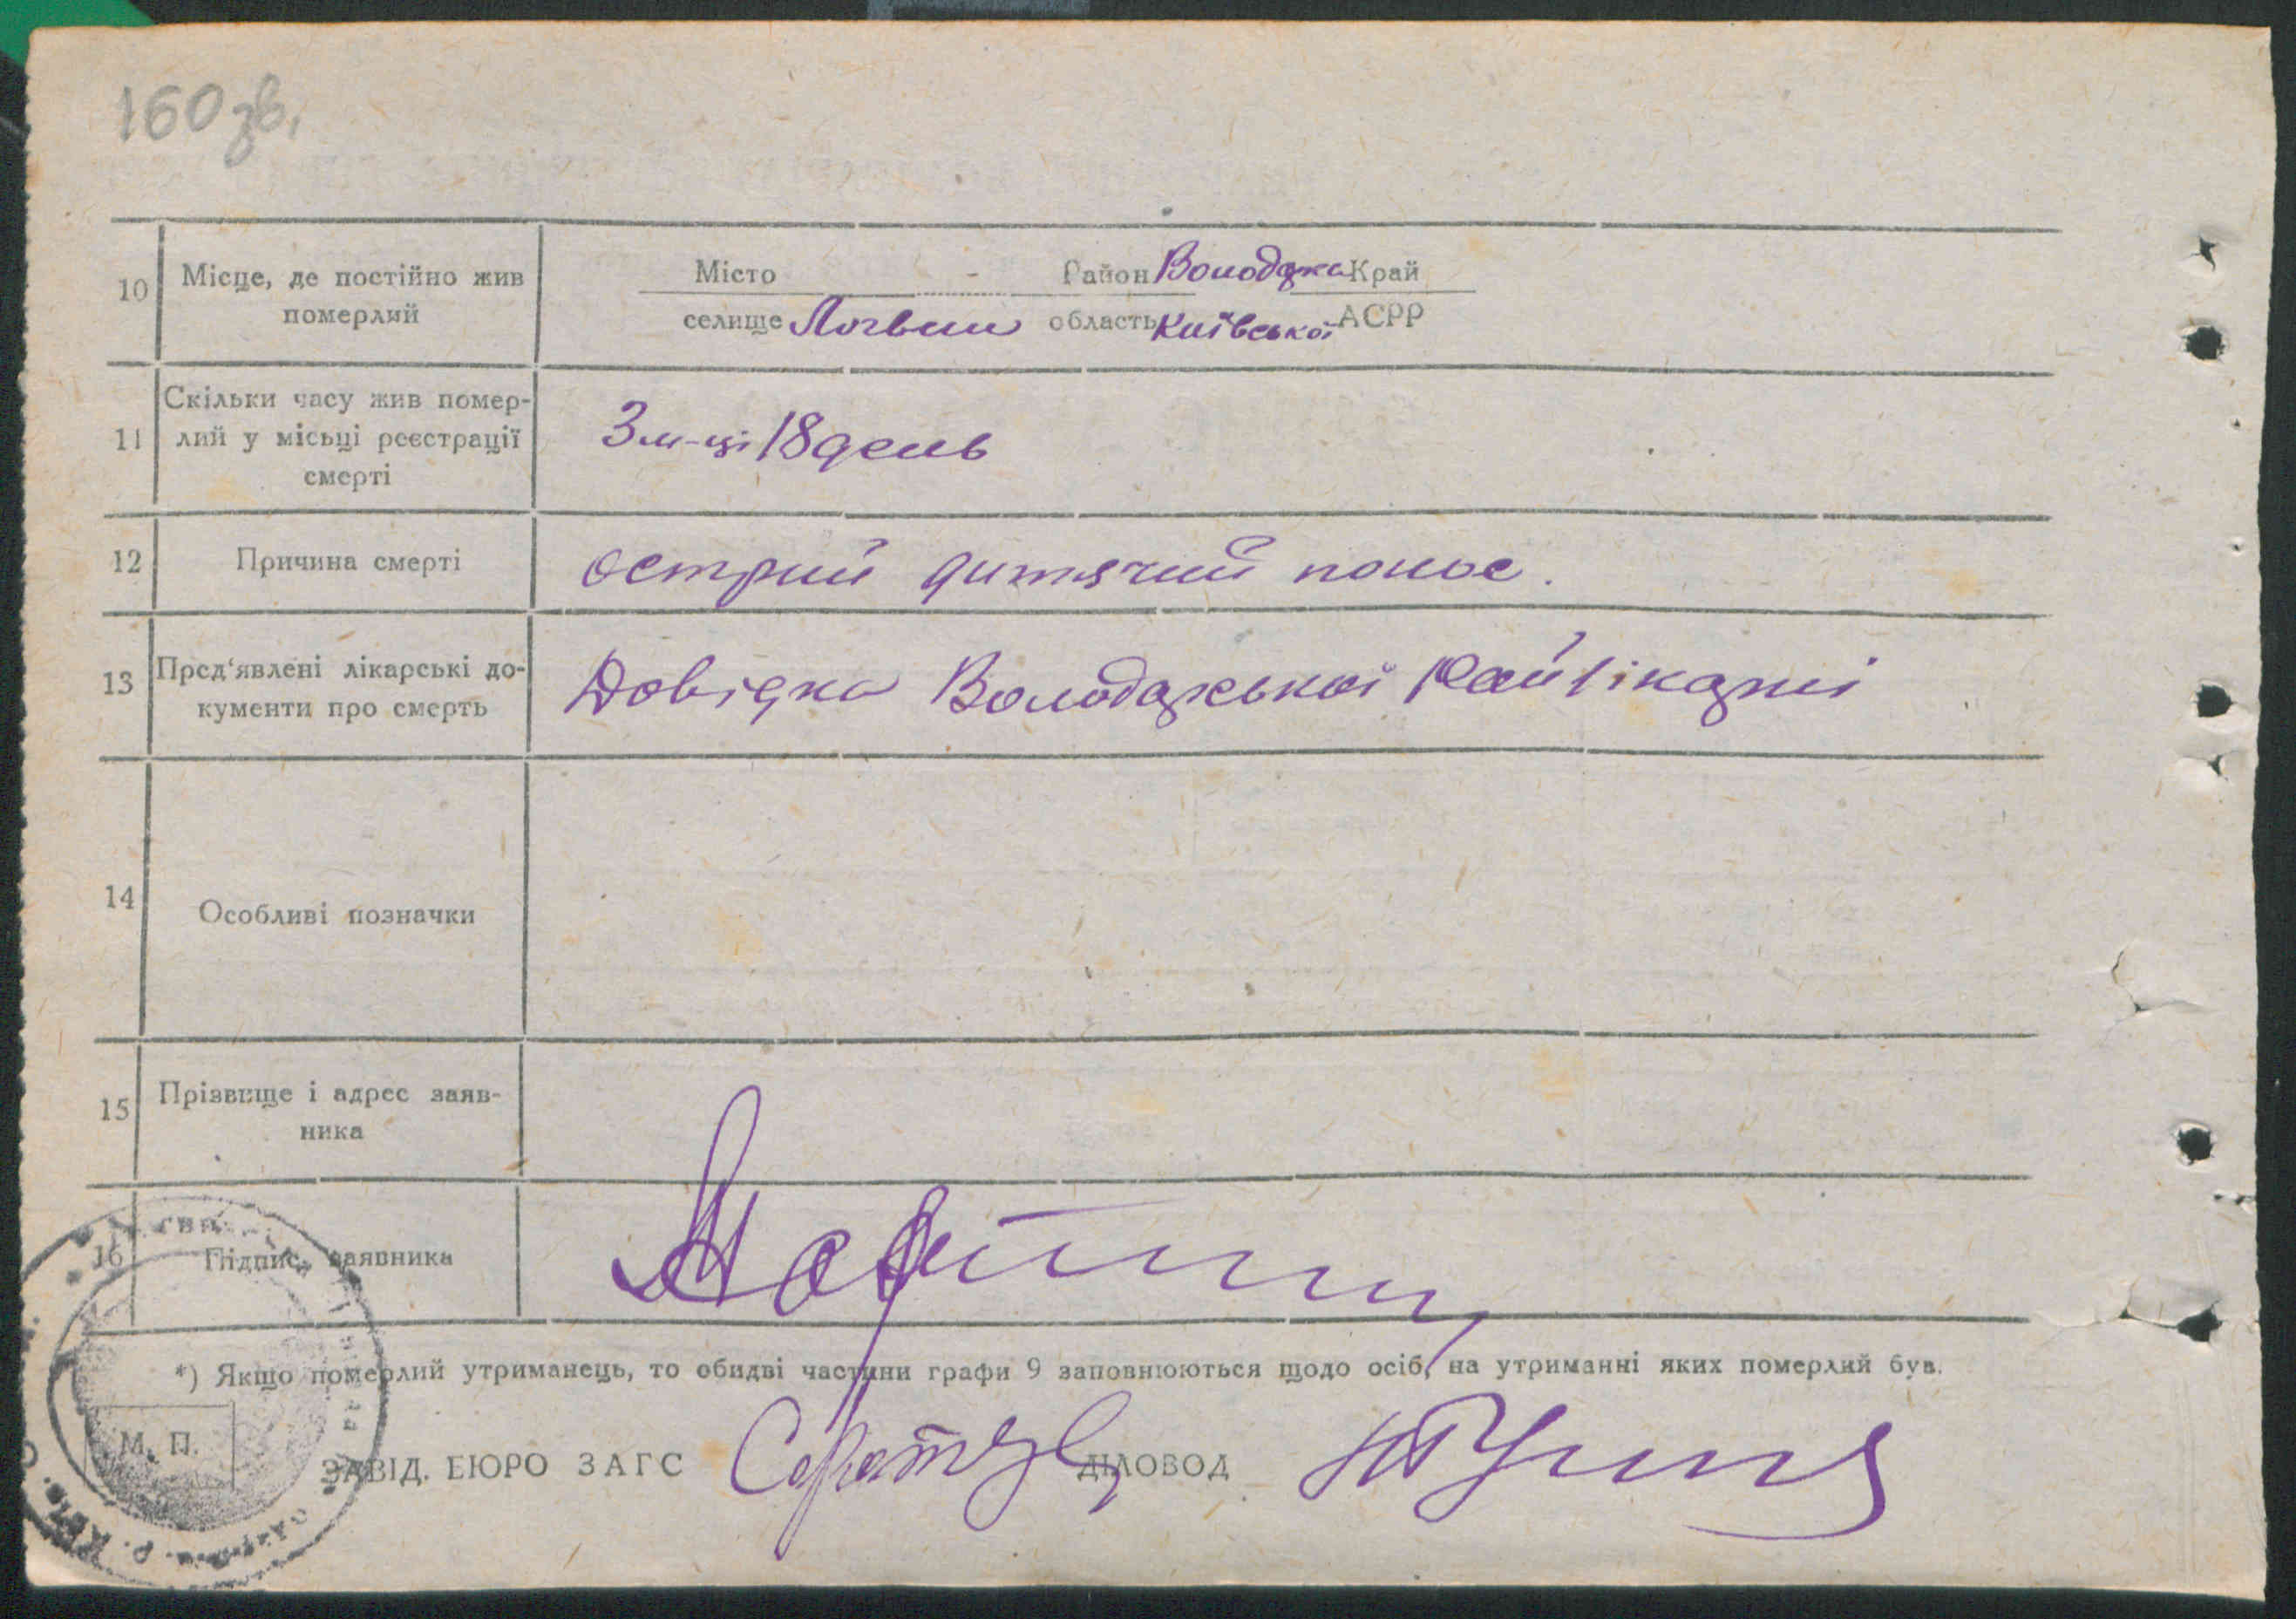 160 зв.
10 Місце, де постійно жив померлий
Місто - Район Володарка Край
селище Логвин область Київської АСРР
11 Скільки часу жив помер-
лий у місьці реєстрації
смерті
3 м-ці 18 день
12 Причина смерті острий дитячий понос.
13 Пред‘явлені лікарські до-
кументи про смерть
Довідка Володарської Райлікарні
14 Особливі позначки
15 Прізвище і адрес заяв-
ника
16 Підпис заявника
*) Якщо померлий утриманець, то обидві частини графи 9 заповнюються щодо осіб, на утриманні яких померлий був.
М. П.
ЗАВІД. БЮРО ЗАГС ДІЛОВОД